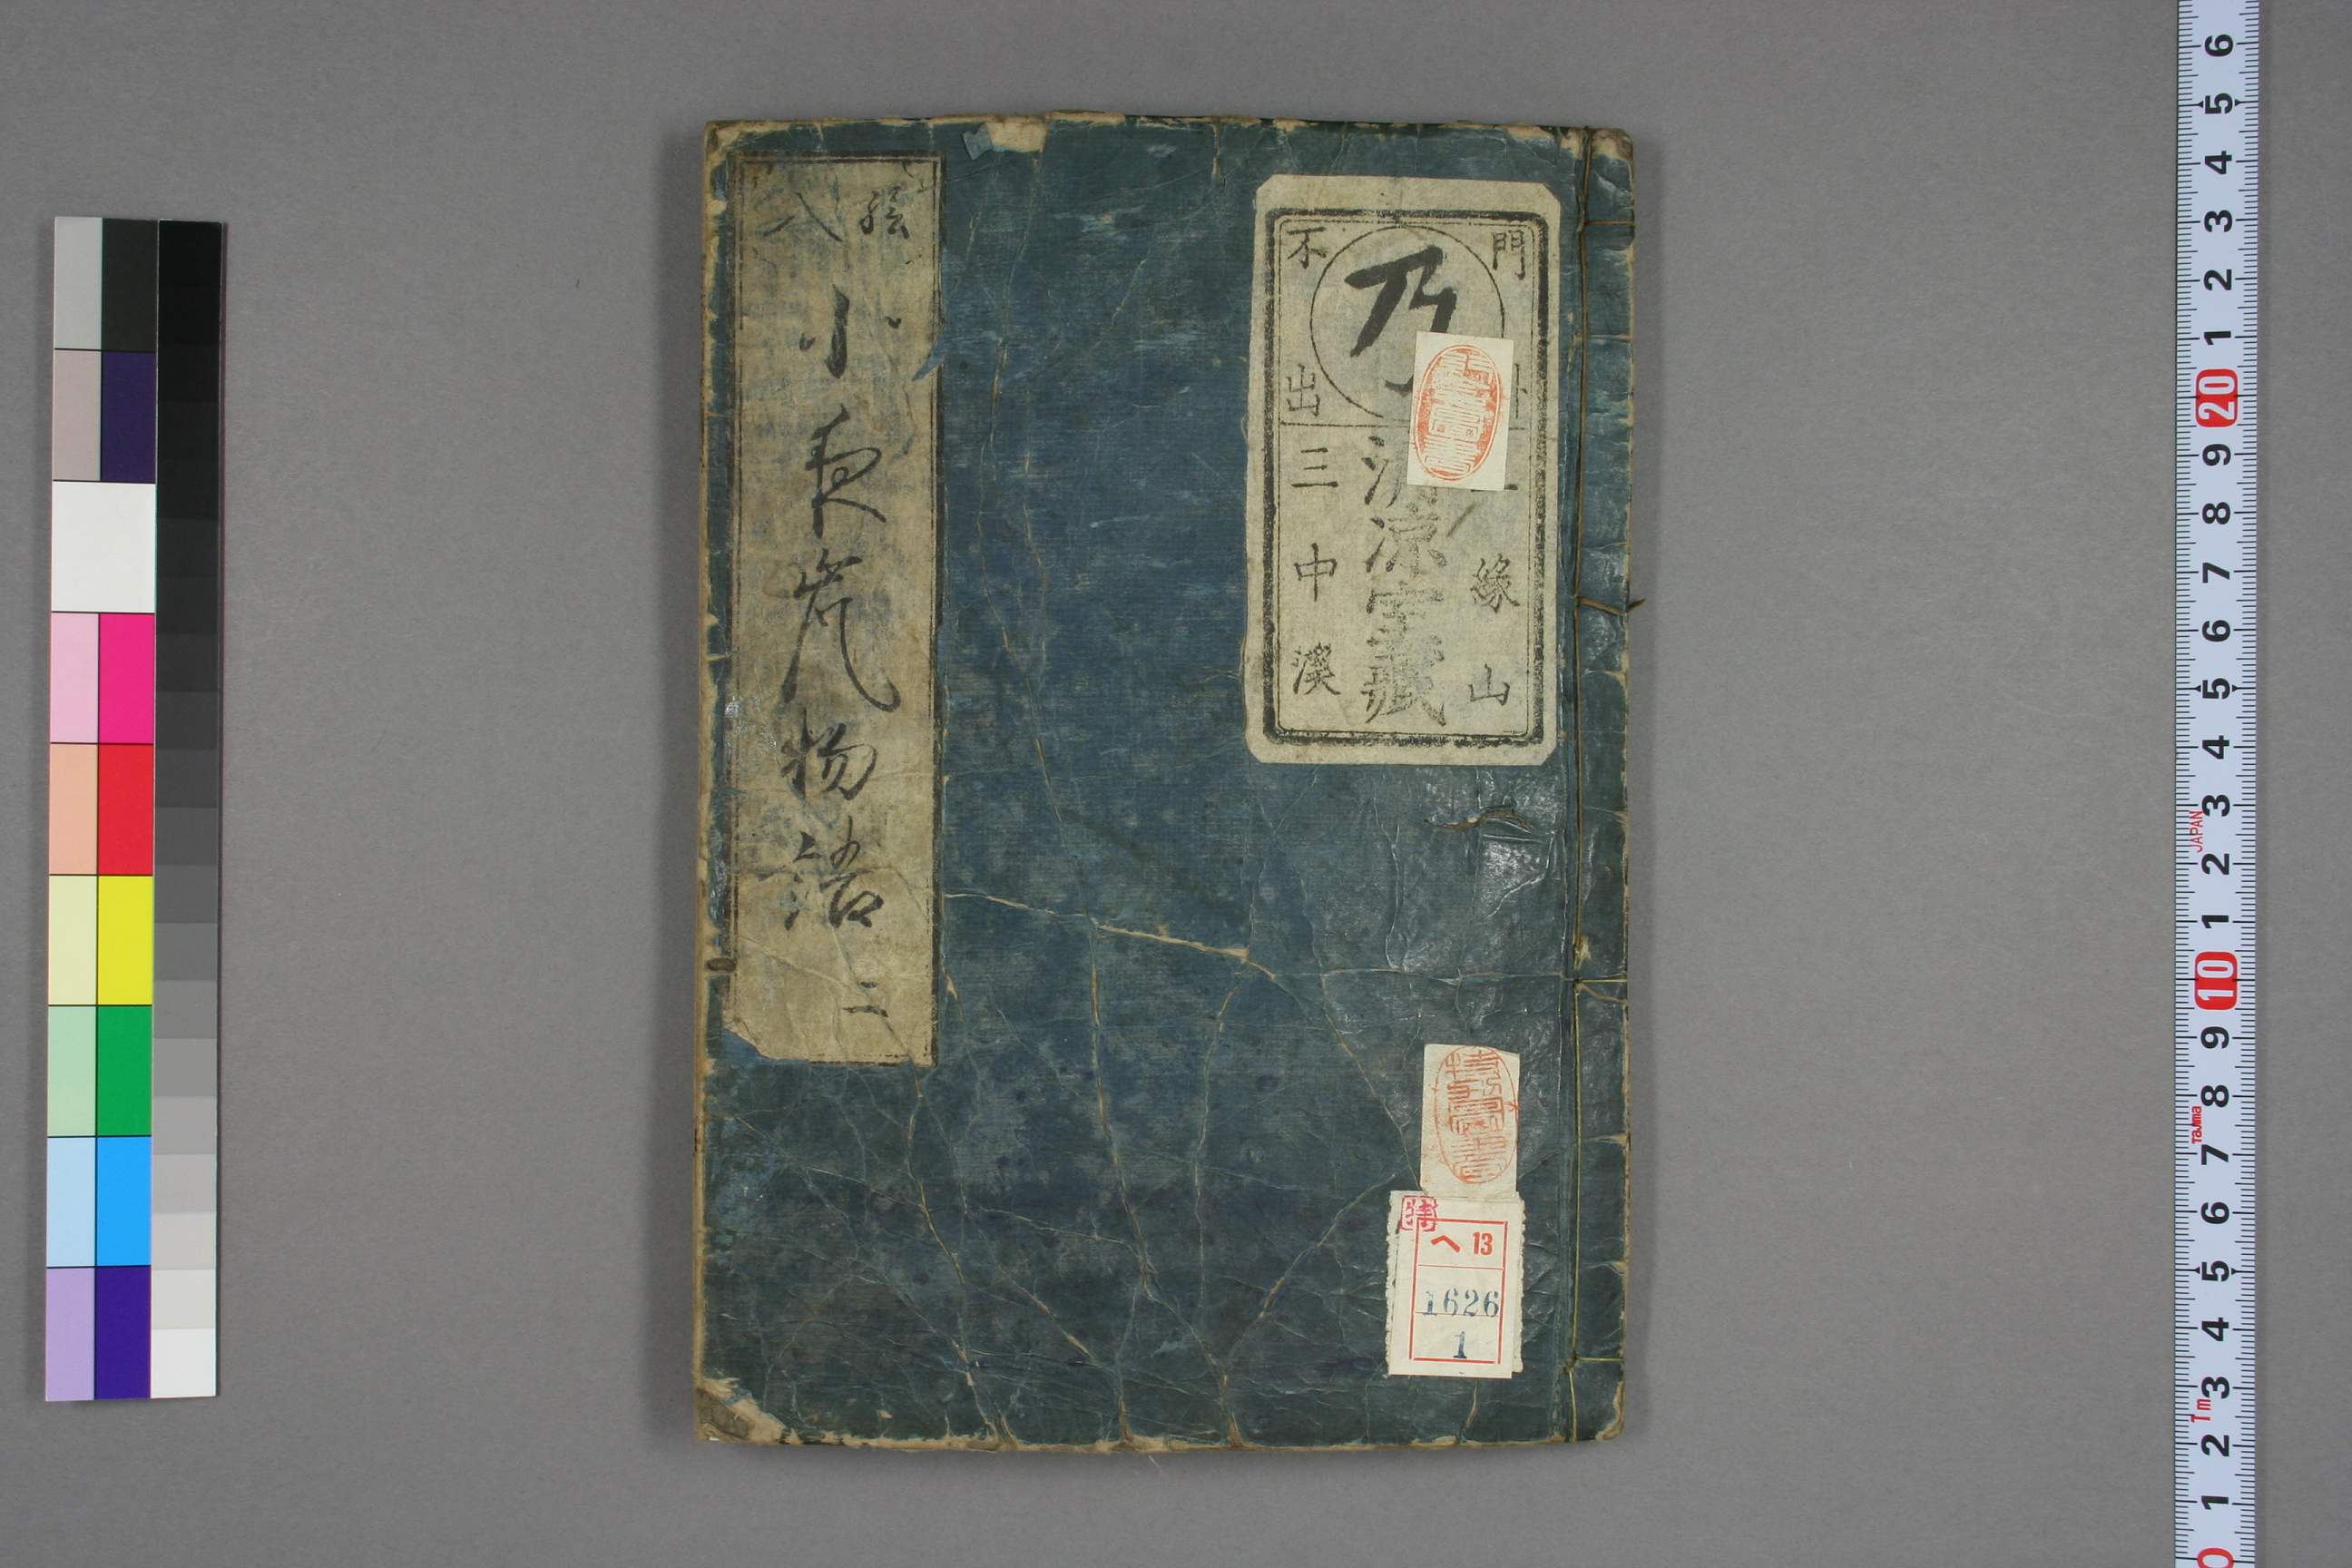 絵
入
小夜嵐物語
二
門
不
出
乃
三
中
溪
涼宇蔵
縁
山
ヘ 13
1626
1
6 5 4 3 2 1 20 9 8 7 6 5 4 3 2 1 10 9 8 7 6 5 4 3 2 1 0
JAPAN
Tajima
Tm